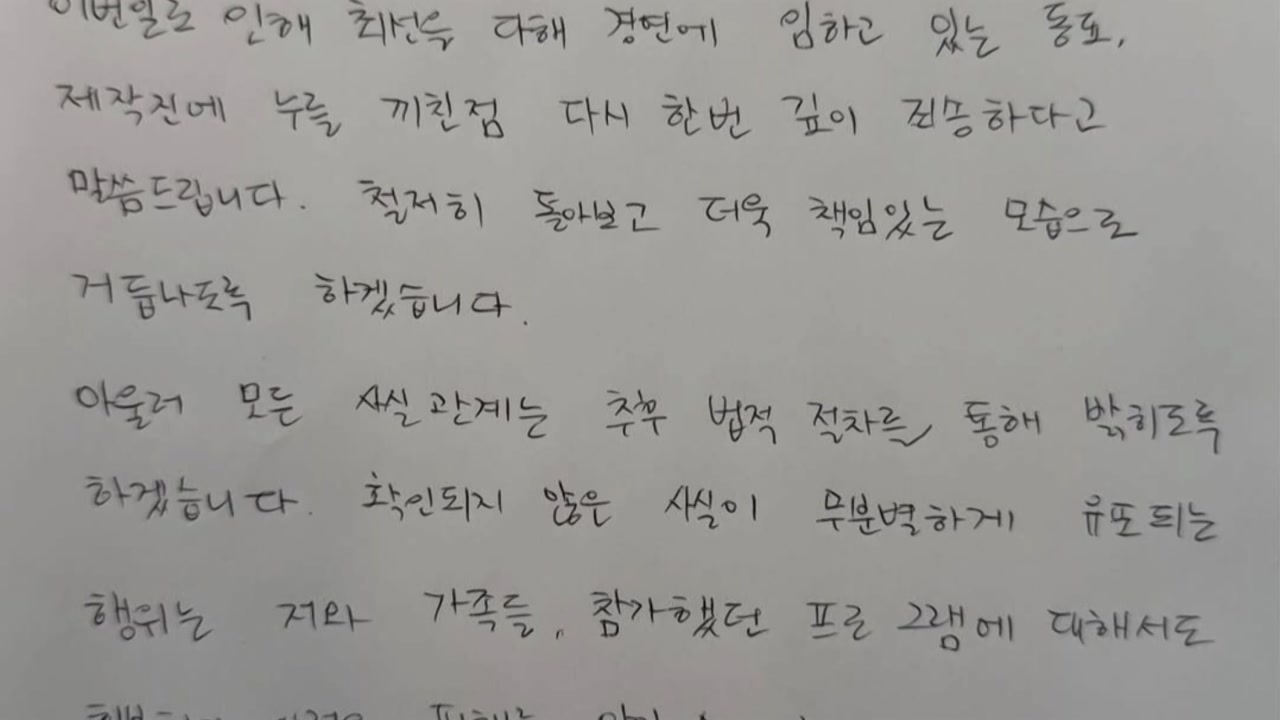 이번일로 인해 최선을 다해 경연에 임하고 있는 동료,
제작진에 누를 끼친점 다시 한번 깊이 죄송하다고
말씀드립니다. 철저히 돌아보고 더욱 책임있는 모습으로
거듭나도록 하겠습니다.
아울러 모든 사실관계는 추후 법적 절차를 통해 밝히도록
하겠습니다. 확인되지 않은 사실이 무분별하게 유포되는
행위는 저와 가족들, 참가했던 프로그램에 대해서도